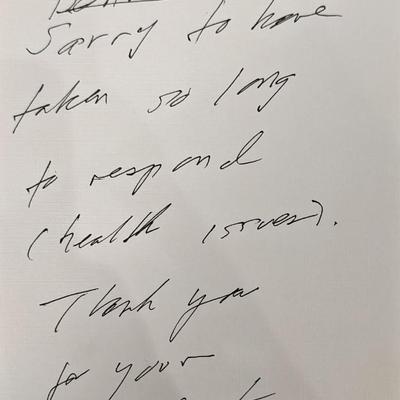 Sorry to have
taken so long
to respond
(health issues).
Thank you
for your